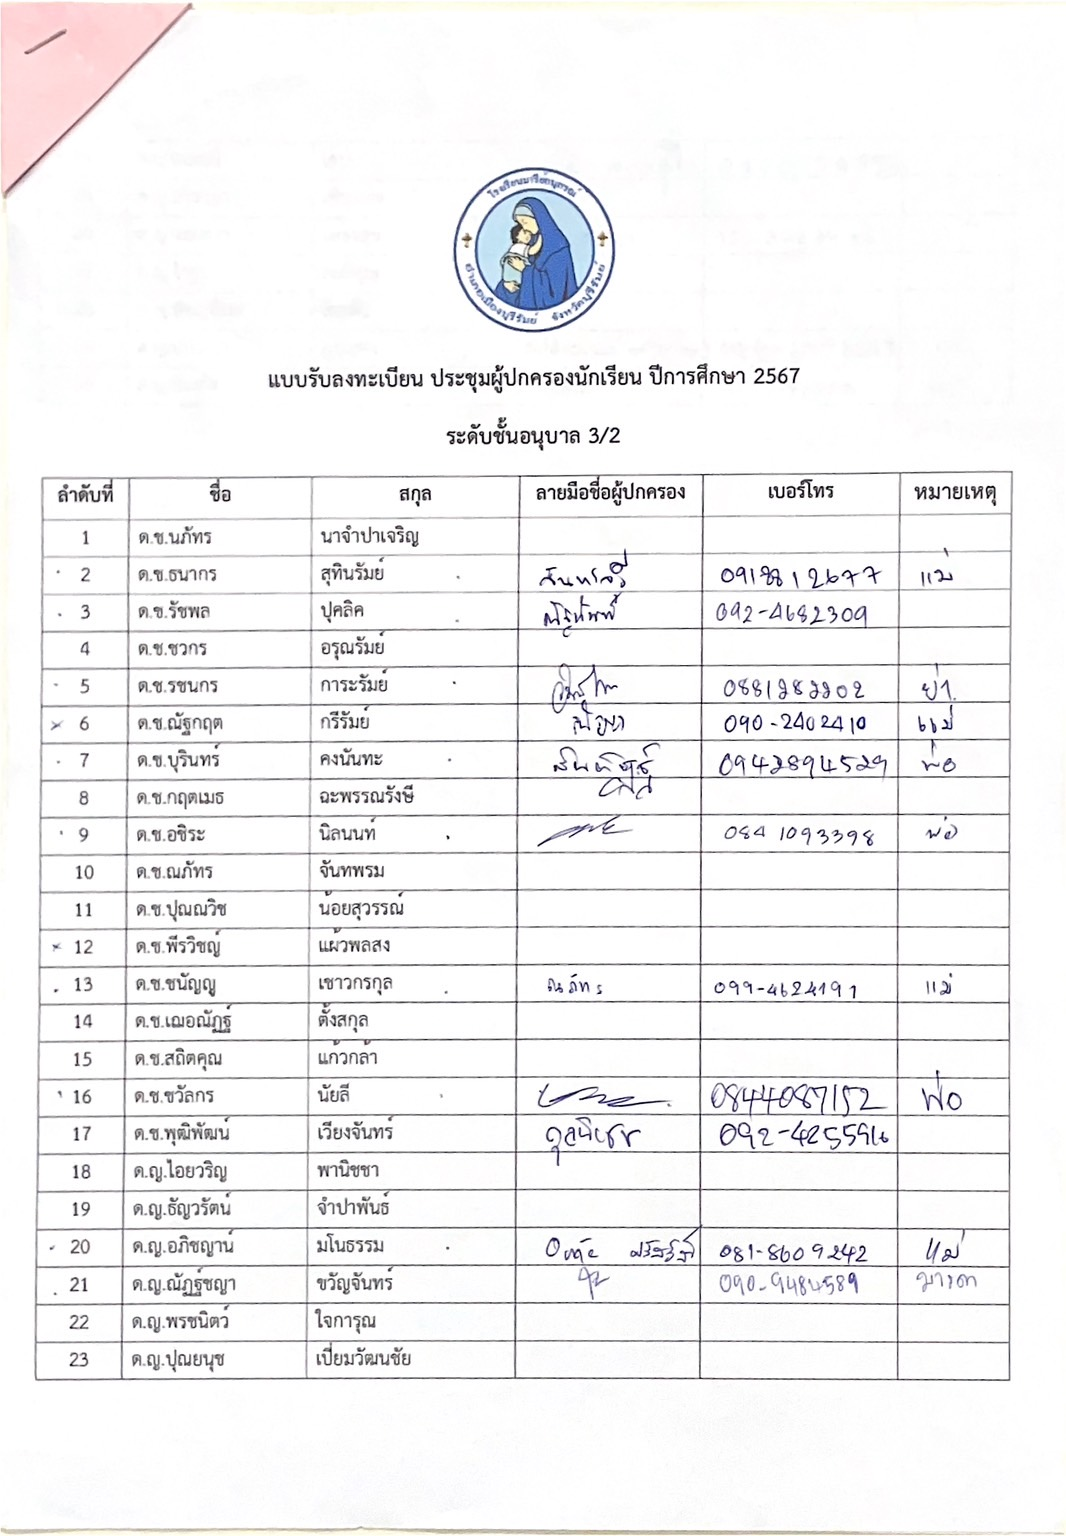 โรงเรียนมารีย์อนุสรณ์
อำเภอเมืองบุรีรัมย์ จังหวัดบุรีรัมย์
แบบรับลงทะเบียน ประชุมผู้ปกครองนักเรียน ปีการศึกษา 2567
ระดับชั้นอนุบาล 3/2
ลำดับที่ ชื่อ สกุล ลายมือชื่อผู้ปกครอง เบอร์โทร หมายเหตุ
1 ด.ช.นภัทร นาจำปาเจริญ
2 ด.ช.ธนากร สุทินรัมย์ 0918812677 แม่
3 ด.ช.รัชพล ปุคลิค 092-4682309
4 ด.ช.ชวกร อรุณรัมย์
5 ด.ช.รชนกร การะรัมย์ 0881282202 ย่า
6 ด.ช.ณัฐกฤต กรีรัมย์ 090-2402410 แม่
7 ด.ช.บุรินทร์ คงนันทะ 0942894529 พ่อ
8 ด.ช.กฤตเมธ ฉะพรรณรังษี
9 ด.ช.อชิระ นิลนนท์ 0841093398 พ่อ
10 ด.ช.ณภัทร จันทพรม
11 ด.ช.ปุณณวิช น้อยสุวรรณ์
12 ด.ช.พีรวิชญ์ แผ้วพลสง
13 ด.ช.ชนัญญู เชาวกรกุล 099-4624191 แม่
14 ด.ช.เฌอณัฏฐ์ ตั้งสกุล
15 ด.ช.สถิตคุณ แก้วกล้า
16 ด.ช.ชวัลกร นัยลี 0844087152 พ่อ
17 ด.ช.พุฒิพัฒน์ เวียงจันทร์ 092-4255916
18 ด.ญ.ไอยวริญ พานิชชา
19 ด.ญ.ธัญวรัตน์ จำปาพันธ์
20 ด.ญ.อภิชญาน์ มโนธรรม 081-8609242 แม่
21 ด.ญ.ณัฏฐ์ชญา ขวัญจันทร์ 090-9484589 มารดา
22 ด.ญ.พรชนิตว์ ใจการุณ
23 ด.ญ.ปุณยนุช เปี่ยมวัฒนชัย